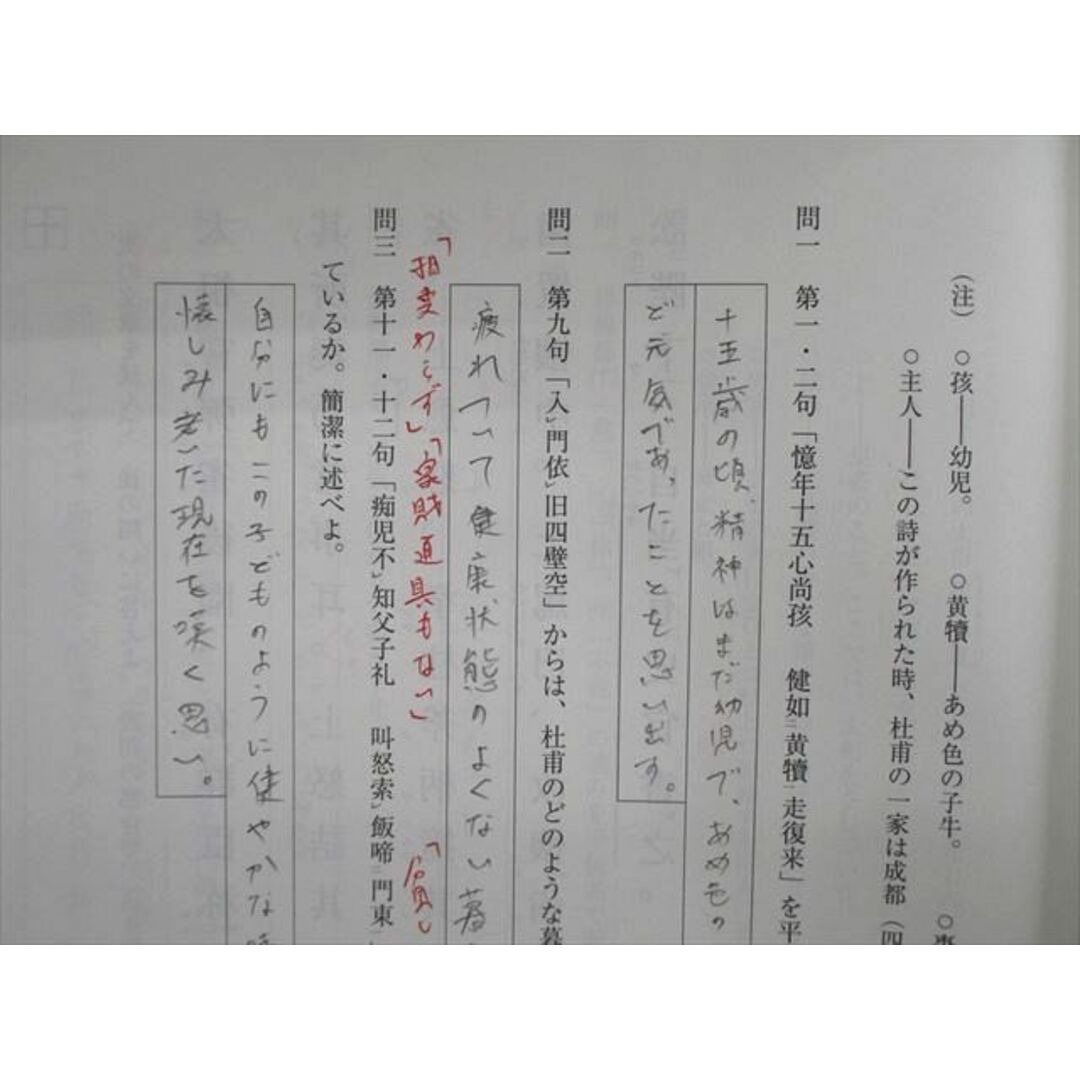 （注）　○孩――幼児。　○黄犢――あめ色の子牛。　○棗
○主人――この詩が作られた時、杜甫の一家は成都（四
問一　第一・二句「憶年十五心尚孩　健如黄犢走復来」を平
十五歳の頃、精神はまだ幼児で、あめ色の
ど元気であったことを思い出す。
問二　第九句「入レ門依レ旧四壁空」からは、杜甫のどのような暮
疲れていて健康状態のよくない暮
「相変わらず」「家財道具もない」「貧し
問三　第十一・十二句「痴児不レ知父子礼　叫怒索レ飯啼門東
ているか。簡潔に述べよ。
自分にもこの子どものように健やかな時
懐しみ老いた現在を嘆く思い。